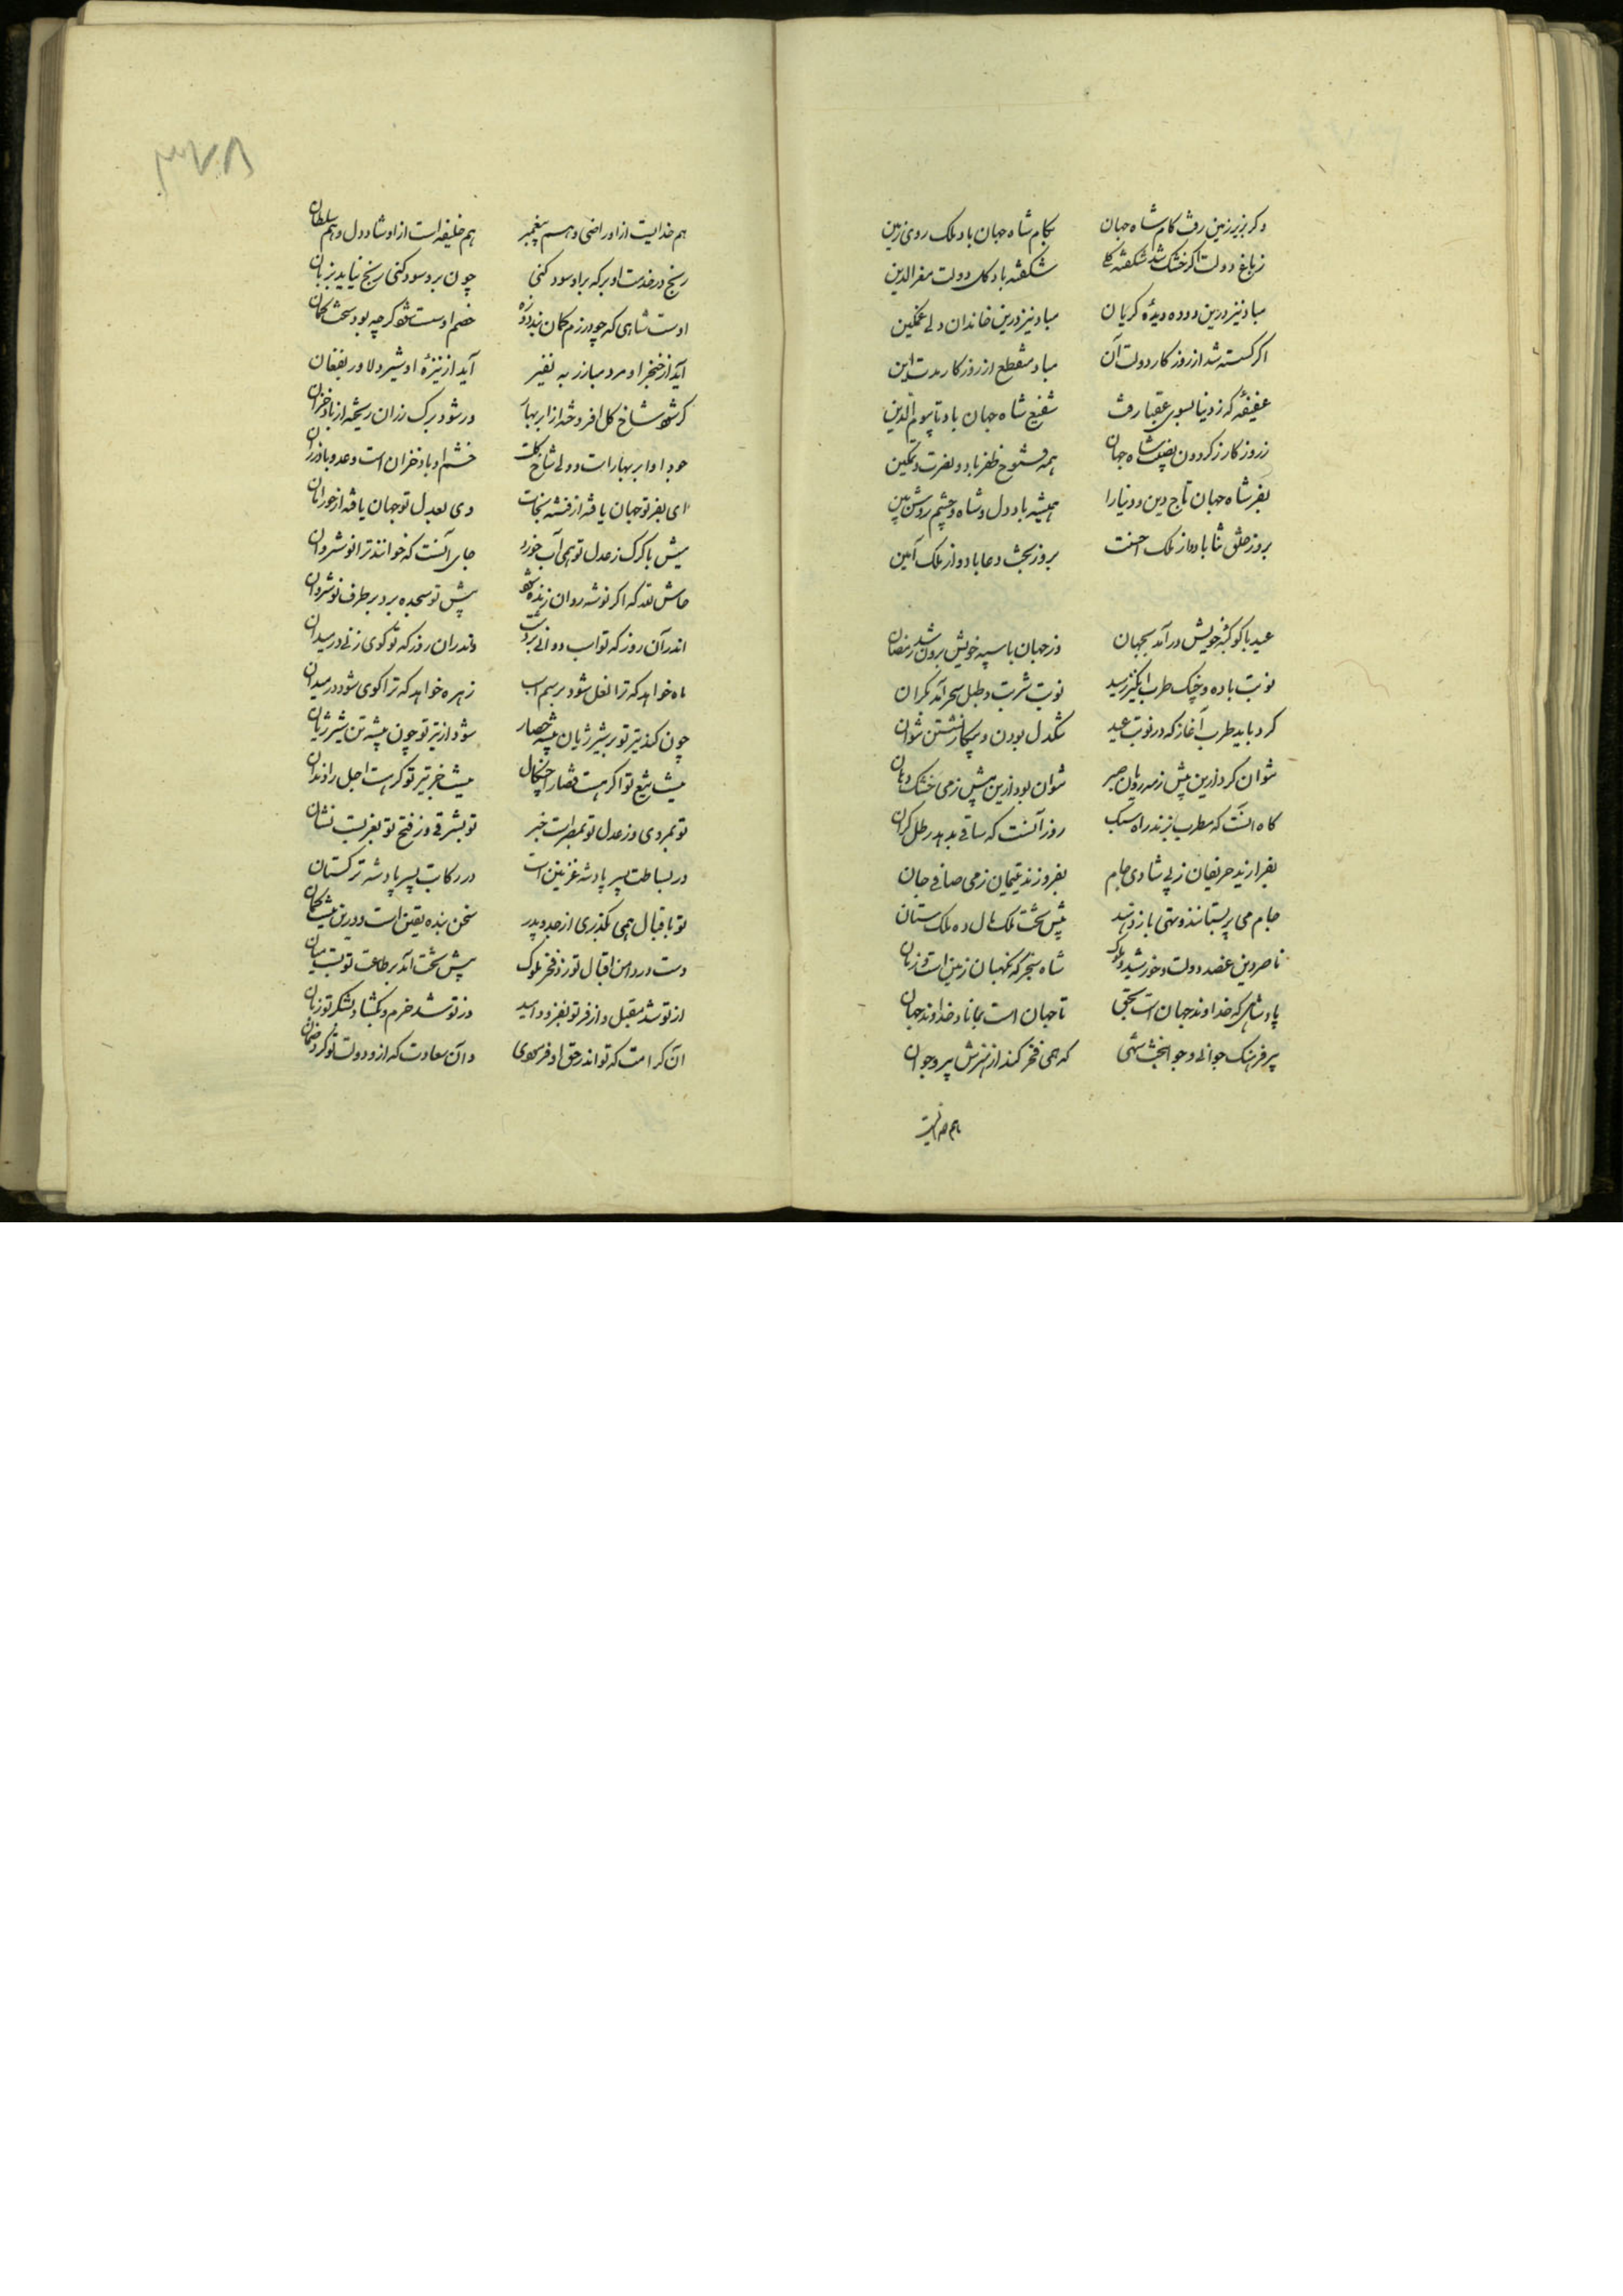 وکر بزیر زمین رفت کام شاه جهان بکام شاه جهان باد ملک روی زمین
ز باغ دولت اکر خشک شد شکفته کلی شکفته باد کل دولت معزالدین
مباد نیز درین دوده دیدۀ کریان مباد نیز درین خاندان دلی غمکین
اکر کسسته شد از روزکار دولت آن مباد منقطع از روزکار مدت این
عفیفۀ که ز دنیا بسوی عقبا رفت شفیع شاه جهان باد تا بیوم الدین
ز روزکار ز کردون نصیب شاه جهان همه فتوح و ظفر باد و نصرت و تمکین
بفر شاه جهان تاج دین و دنیا را همیشه باد دل شاه و چشم روشن بین
بروز خلق ثنا باد و از ملک احسنت بروز بخت دعا باد و از ملک آمین
عید با کوکبۀ خویش در آمد بجهان وز جهان با سپه خویش برون شد رمضان
نوبت باده و چنک طرب انکیز رسید نوبت شربت و طبل سحر آمد بکران
کرد باید طرب آغاز که در نوبت عید تنکدل بودن و بیکار نشستن نتوان
نتوان کرد ازین بیش ز مه رویان صبر نتوان بود ازین بیش ز می خشک دهان
کاه آنست که مطرب بزند راه سبک روز آنست که ساقی بدهد رطل کران
بفرازند حریفان ز پی شادی جام بفروزند ندیمان ز می صافی جان
جام می پر بستانند و تهی باز دهند پیش تخت ملک مال ده ملک ستان
ناصر دین عضد دولت و خورشید ملوک شاه سنجر که نکهبان زمین است و زمان
پادشاهی که خداوند جهان است بحق تا جهان است بماناد خداوند جهان
پیر فرهنک جوانی و جوانبخت شهی که همی فخر کند از هنرش پیر و جوان
هم خدایست
۳۷۸
هم خدایست ازو راضی و هم پیغمبر هم خلیفه است ازو شاد دل و هم سلطان
رنج در خدمت او بر که براو سود کنی چون برو سود کنی رنج نیاید بزیان
اوست شاهی که چو در رزم کمان بندد و زه خصم او سست شود کرچه بود سخت کمان
آید از خنجر او مرد مبارز به نفیر آید از نیزۀ او شیر دلاور بفغان
کر شود شاخ کل افروخته از ابر بهار ور شود برک رزان ریخته از باد خزان
جود او ابر بهار است و ولی شاخ کلست خشم او باد خزان است و عدو باد رزان
ای بفر تو جهان یافته از فتنه نجات وی بعدل تو جهان یافته از جور امان
میش با کرک ز عدل تو همی آب خورد جای آنست که خوانند ترا نوشروان
حاش لله که اکر نوشه روان زنده شود پیش تو سجده برد بر طرف نوشروان
اندر آن روز که تو اسب دوانی بر دشت واندران روز که تو کوی زنی در میدان
ماه خواهد که ترا نعل شود بر سم اسب زهره خواهد که ترا کوی شود در میدان
چون کند تیر تو بر شیر ژیان بیشه حصار شود از تیر تو چون بیشه تن شیر ژیان
هست تیغ تو اکر هست قضا را چنکال هست خنجر تیز تو کر هست اجل را دندان
تو بمروی و ز عدل تو بمصر است خبر تو بشرقی و ز فتح تو بغربست نشان
در بساطت پسر پادشه غزنین است در رکابت پسر پادشه ترکستان
تو باقبال همی بکذری از جد و پدر سخن بنده یقین است و درین نیست کمان
دست در دامن اقبال تو زد فخر ملوک پیش تخت آمد بر طاعت تو بست میان
از تو شد مقبل و از فر تو بفزود امید وز تو شد خرم و بکشاد بشکر تو زبان
آن کرامت که تو اندر حق او فرمودی وان سعادت که ازو دولت تو کرد ضمان